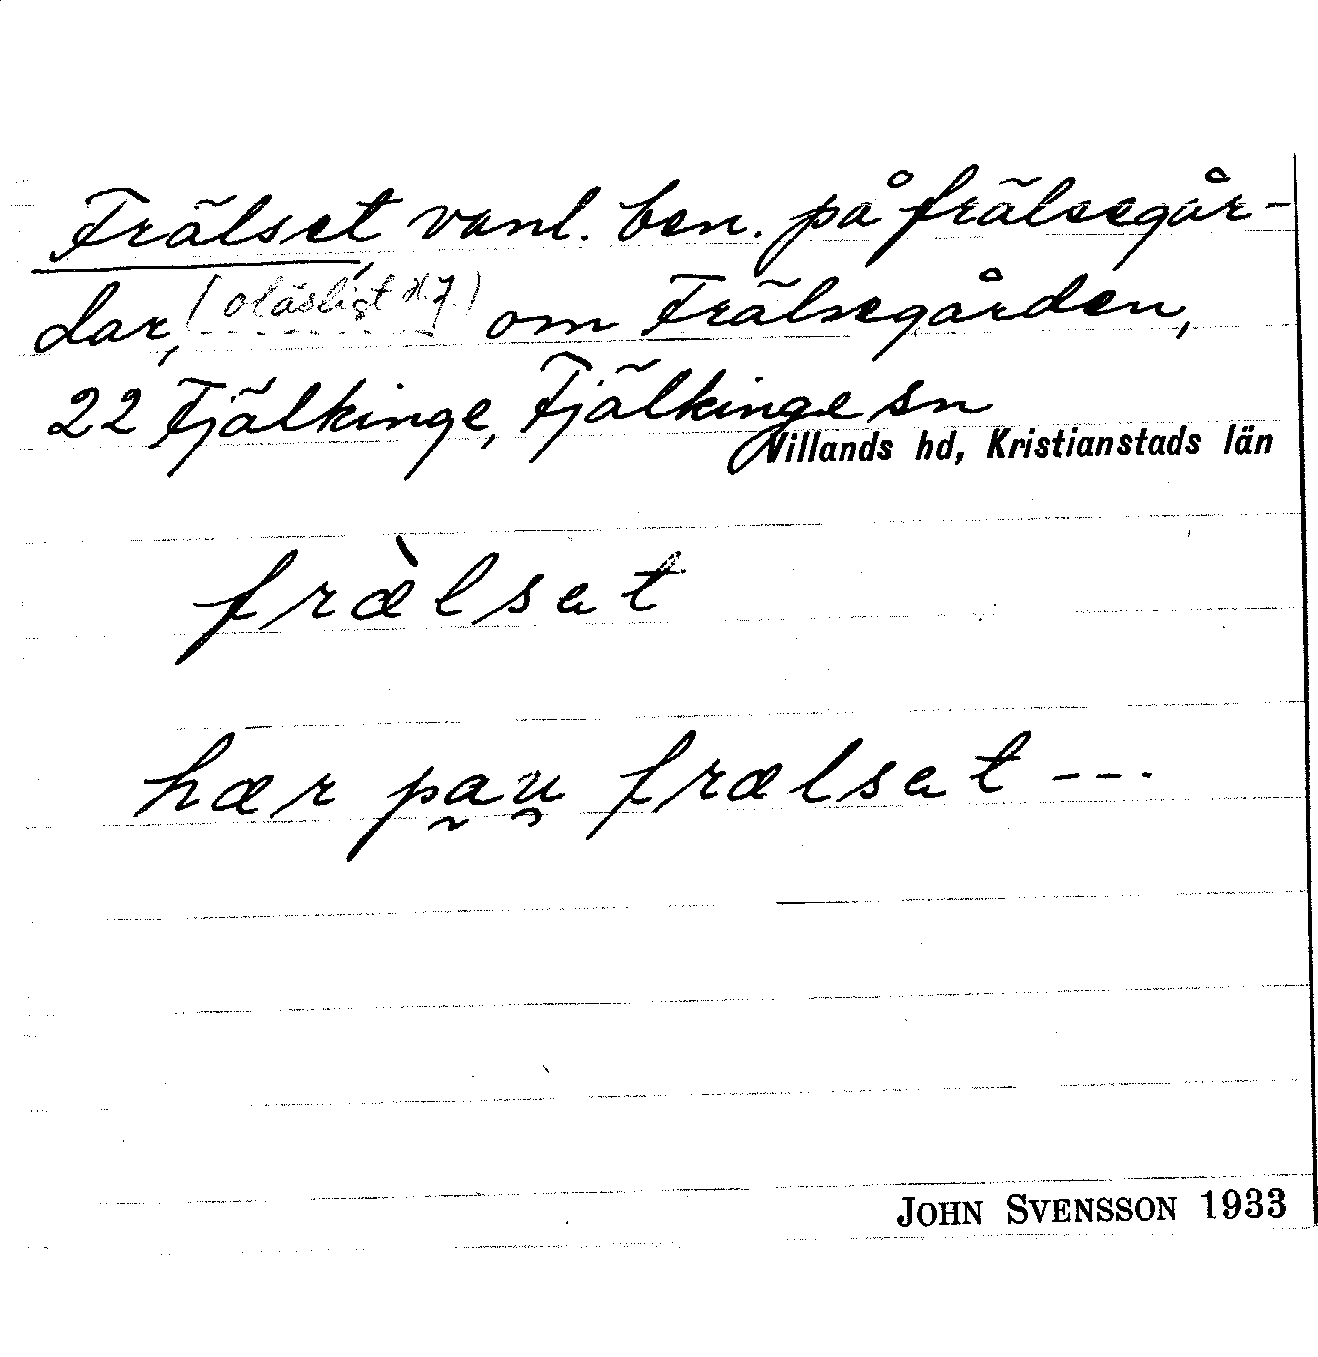 Frälset, vanl. ben. på frälsegår-
dar, (oläsligt) om Frälsegården,
22 Fjälkinge, Fjälkinge sn
Villands hd, Kristianstads län
fræ̀lsət
hær pau frælsət ---
JOHN SVENSSON 1933